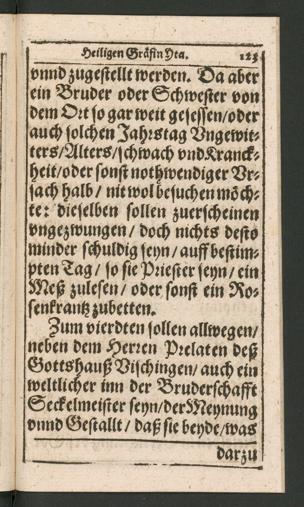 Heiligen Gräfin Yta. 123
vnnd zugestellt werden. Da aber
ein Bruder oder Schwester von
dem Ort so gar weit gesessen/oder
auch solchen Jahrstag Vngewit-
ters/Alters/schwach vnd Kranck-
heit/oder sonst nothwendiger Vr-
sach halb/ nit wol besuchen möch-
te: dieselben sollen zuerscheinen
vngezwungen/ doch nichts desto
minder schuldig seyn/ auff bestim-
pten Tag/ so sie Priester seyn/ ein
Meß zulesen/ oder sonst ein Ro-
senkrantz zubetten.
Zum vierdten sollen allwegen/
neben dem Herren Prelaten deß
Gottshauß Vischingen/ auch ein
weltlicher inn der Bruderschafft
Seckelmeister seyn/der Meynung
vnnd Gestallt/ daß sie beyde/was
darzu